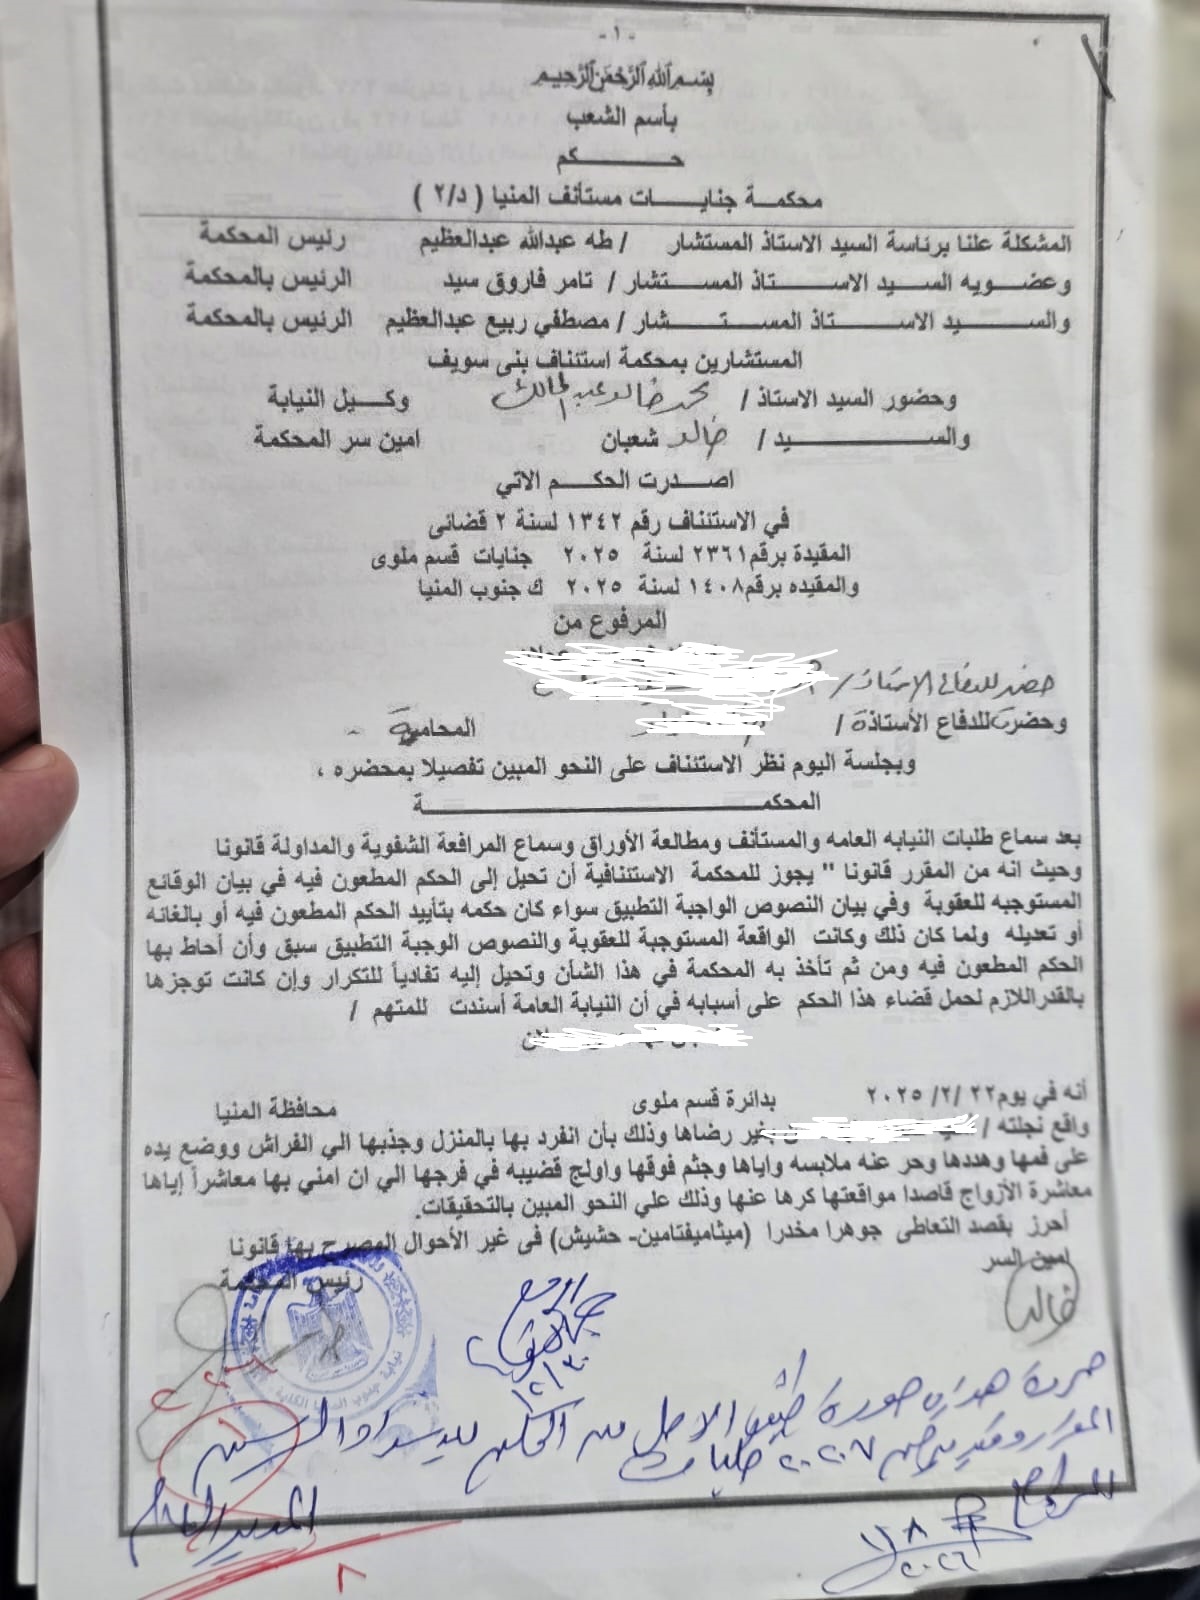 - ١ -
بسم الله الرحمن الرحيم
بأسم الشعب
حـــــكم
محكمـــة جنايـــــات مستأنف المنيا ( د/٢ )
المشكلة علنا برئاسة السيد الاستاذ المستشار / طه عبدالله عبدالعظيم رئيس المحكمة
وعضـــويه السيـــد الاســـــتاذ المستـــشار / تامر فاروق سيد الرئيس بالمحكمة
والســـــيد الاســـــتاذ المســتـــشار / مصطفي ربيع عبدالعظيم الرئيس بالمحكمة
المستشارين بمحكمة استئناف بنى سويف
وحضور السيد الاستاذ / محمد خالد عبد المالك وكـــيل النيابة
والســـــــــيد / خالد شعبان امين سر المحكمة
اصـــدرت الحكـــم الاتي
في الاستئناف رقم ١٣٤٢ لسنة ٢ قضائى
المقيدة برقم٢٣٦١ لسنة ٢٠٢٥ جنايات قسم ملوى
والمقيده برقم١٤٠٨ لسنة ٢٠٢٥ ك جنوب المنيا
المرفوع من
حضر للدفاع الاستاذ /
وحضرت للدفاع الأستاذة / المحامية
وبجلسة اليوم نظر الاستئناف على النحو المبين تفصيلا بمحضره ،
المحكمـــــــــــة
بعد سماع طلبات النيابه العامه والمستأنف ومطالعة الأوراق وسماع المرافعة الشفوية والمداولة قانونا
وحيث انه من المقرر قانونا " يجوز للمحكمة الاستئنافية أن تحيل إلى الحكم المطعون فيه في بيان الوقائع
المستوجبه للعقوبة وفي بيان النصوص الواجبة التطبيق سواء كان حكمه بتأييد الحكم المطعون فيه أو بالغائه
أو تعديله ولما كان ذلك وكانت الواقعة المستوجبة للعقوبة والنصوص الوجبة التطبيق سبق وأن أحاط بها
الحكم المطعون فيه ومن ثم تأخذ به المحكمة في هذا الشأن وتحيل إليه تفادياً للتكرار وإن كانت توجزها
بالقدراللازم لحمل قضاء هذا الحكم على أسبابه في أن النيابة العامة أسندت للمتهم /
أنه في يوم٢٢ /٢/ ٢٠٢٥ بدائرة قسم ملوى محافظة المنيا
واقع نجلته / بغير رضاها وذلك بأن انفرد بها بالمنزل وجذبها الي الفراش ووضع يده
على فمها وهددها وحر عنه ملابسه واياها وجثم فوقها واولج قضيبه في فرجها الي ان امني بها معاشراً إياها
معاشرة الأزواج قاصدا مواقعتها كرها عنها وذلك علي النحو المبين بالتحقيقات.
أحرز بقصد التعاطى جوهرا مخدرا (ميثاميفتامين- حشيش) فى غير الأحوال المصرح بها قانونا
امين السر رئيس المحكمة
خالد
نيابة جنوب المنيا الكلية
١٢/٣٠
صورة طبق الاصل من
المدير العام
٢٠٢٦